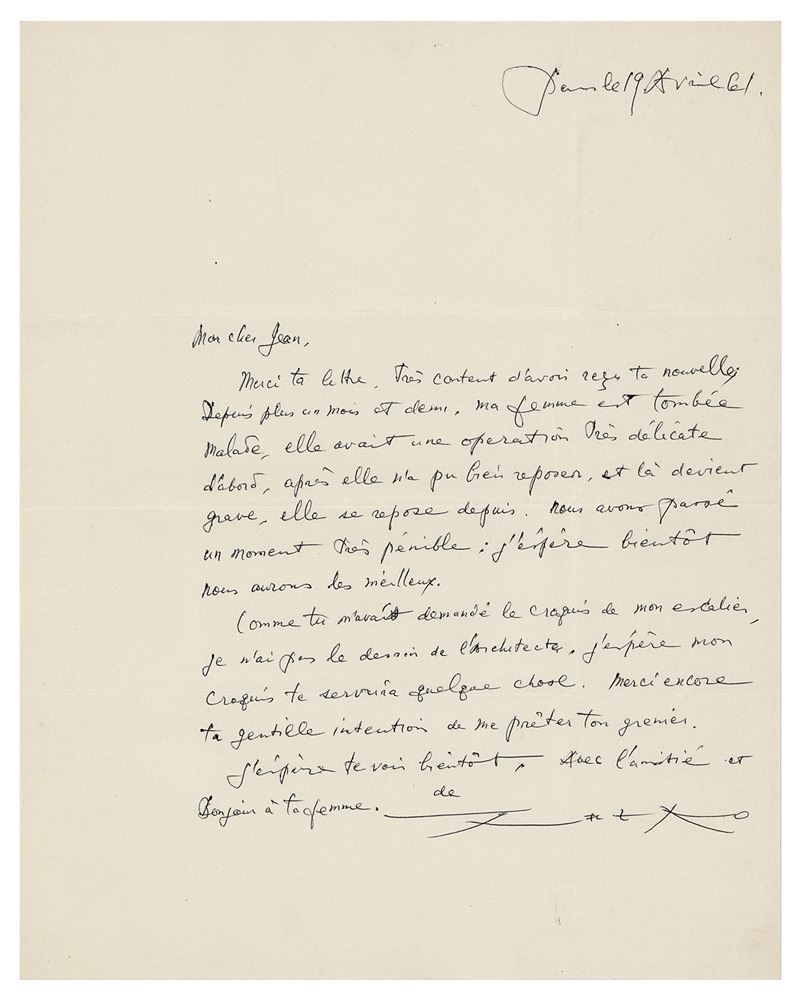 Paris le 19 Avril 61.
Mon cher Jean,
Merci ta lettre. Très content d'avoir reçu ta nouvelle,
Depuis plus un mois et demi. ma femme est tombée
malade, elle avait une operation très délicate
d'abord, après elle n'a pu bien reposer, et là devient
grave, elle se repose depuis. nous avons passé
un moment très pénible ; j'éspère bientôt
nous aurons les meilleux.
Comme tu m'avait demandé le croquis de mon escalier,
je n'ai pas le dessin de l'Architecte, j'espère mon
croquis te servira quelque chose. Merci encore
ta gentille intention de me prêter ton grenier.
J'éspère te voir bientôt, Avec l'amitié et
Bonjour à ta femme. de